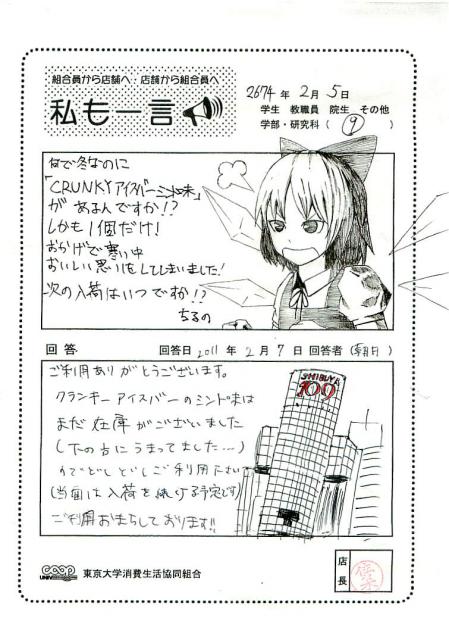 組合員から店舗へ・店舗から組合員へ
私も一言
2674年 2月 5日
学生 教職員 院生 その他
学部・研究科（ ⑨ ）
なで冬なのに
「CRUNKYアイスバーミント味」
があるんですか!?
しかも1個だけ!
おかげで寒い中
おいしい思いをしてしまいました!
次の入荷はいつですか!?
ちるの
回答 回答日 2011年 2月 7日 回答者（朝日）
ご利用ありがとうございます。
クランキーアイスバーのミント味は
まだ在庫がございました
(下の方にうまってました…)
のでどしどしご利用下さい
(当面は入荷を続ける予定です)
ご利用おまちしております!!
SHIBUYA
109
coop
UNIV
東京大学消費生活協同組合
店長